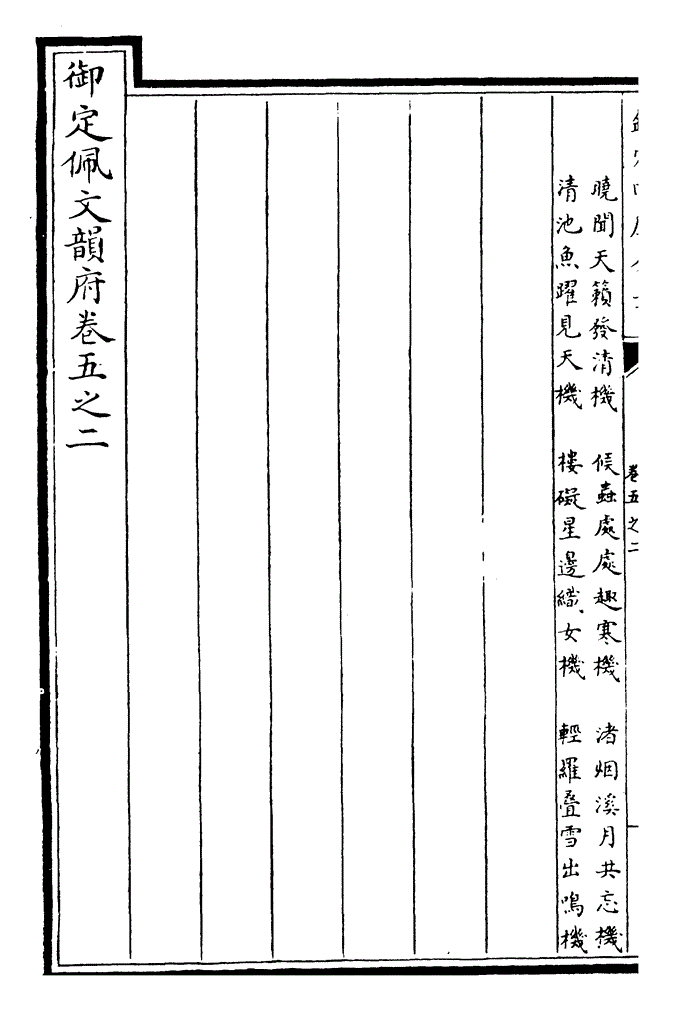 卷五之二
曉聞天籟發清機　候蟲處處趣寒機　渚烟溪月共忘機
清池魚躍見天機　樓礙星邊織女機　輕羅疊雪出鳴機
御定佩文韻府卷五之二